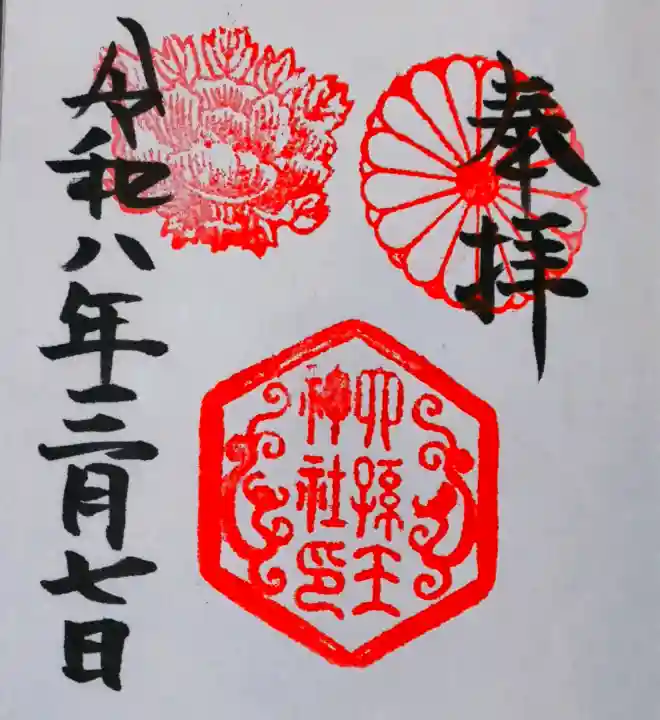 奉拝
六孫王
神社印
令和八年三月七日